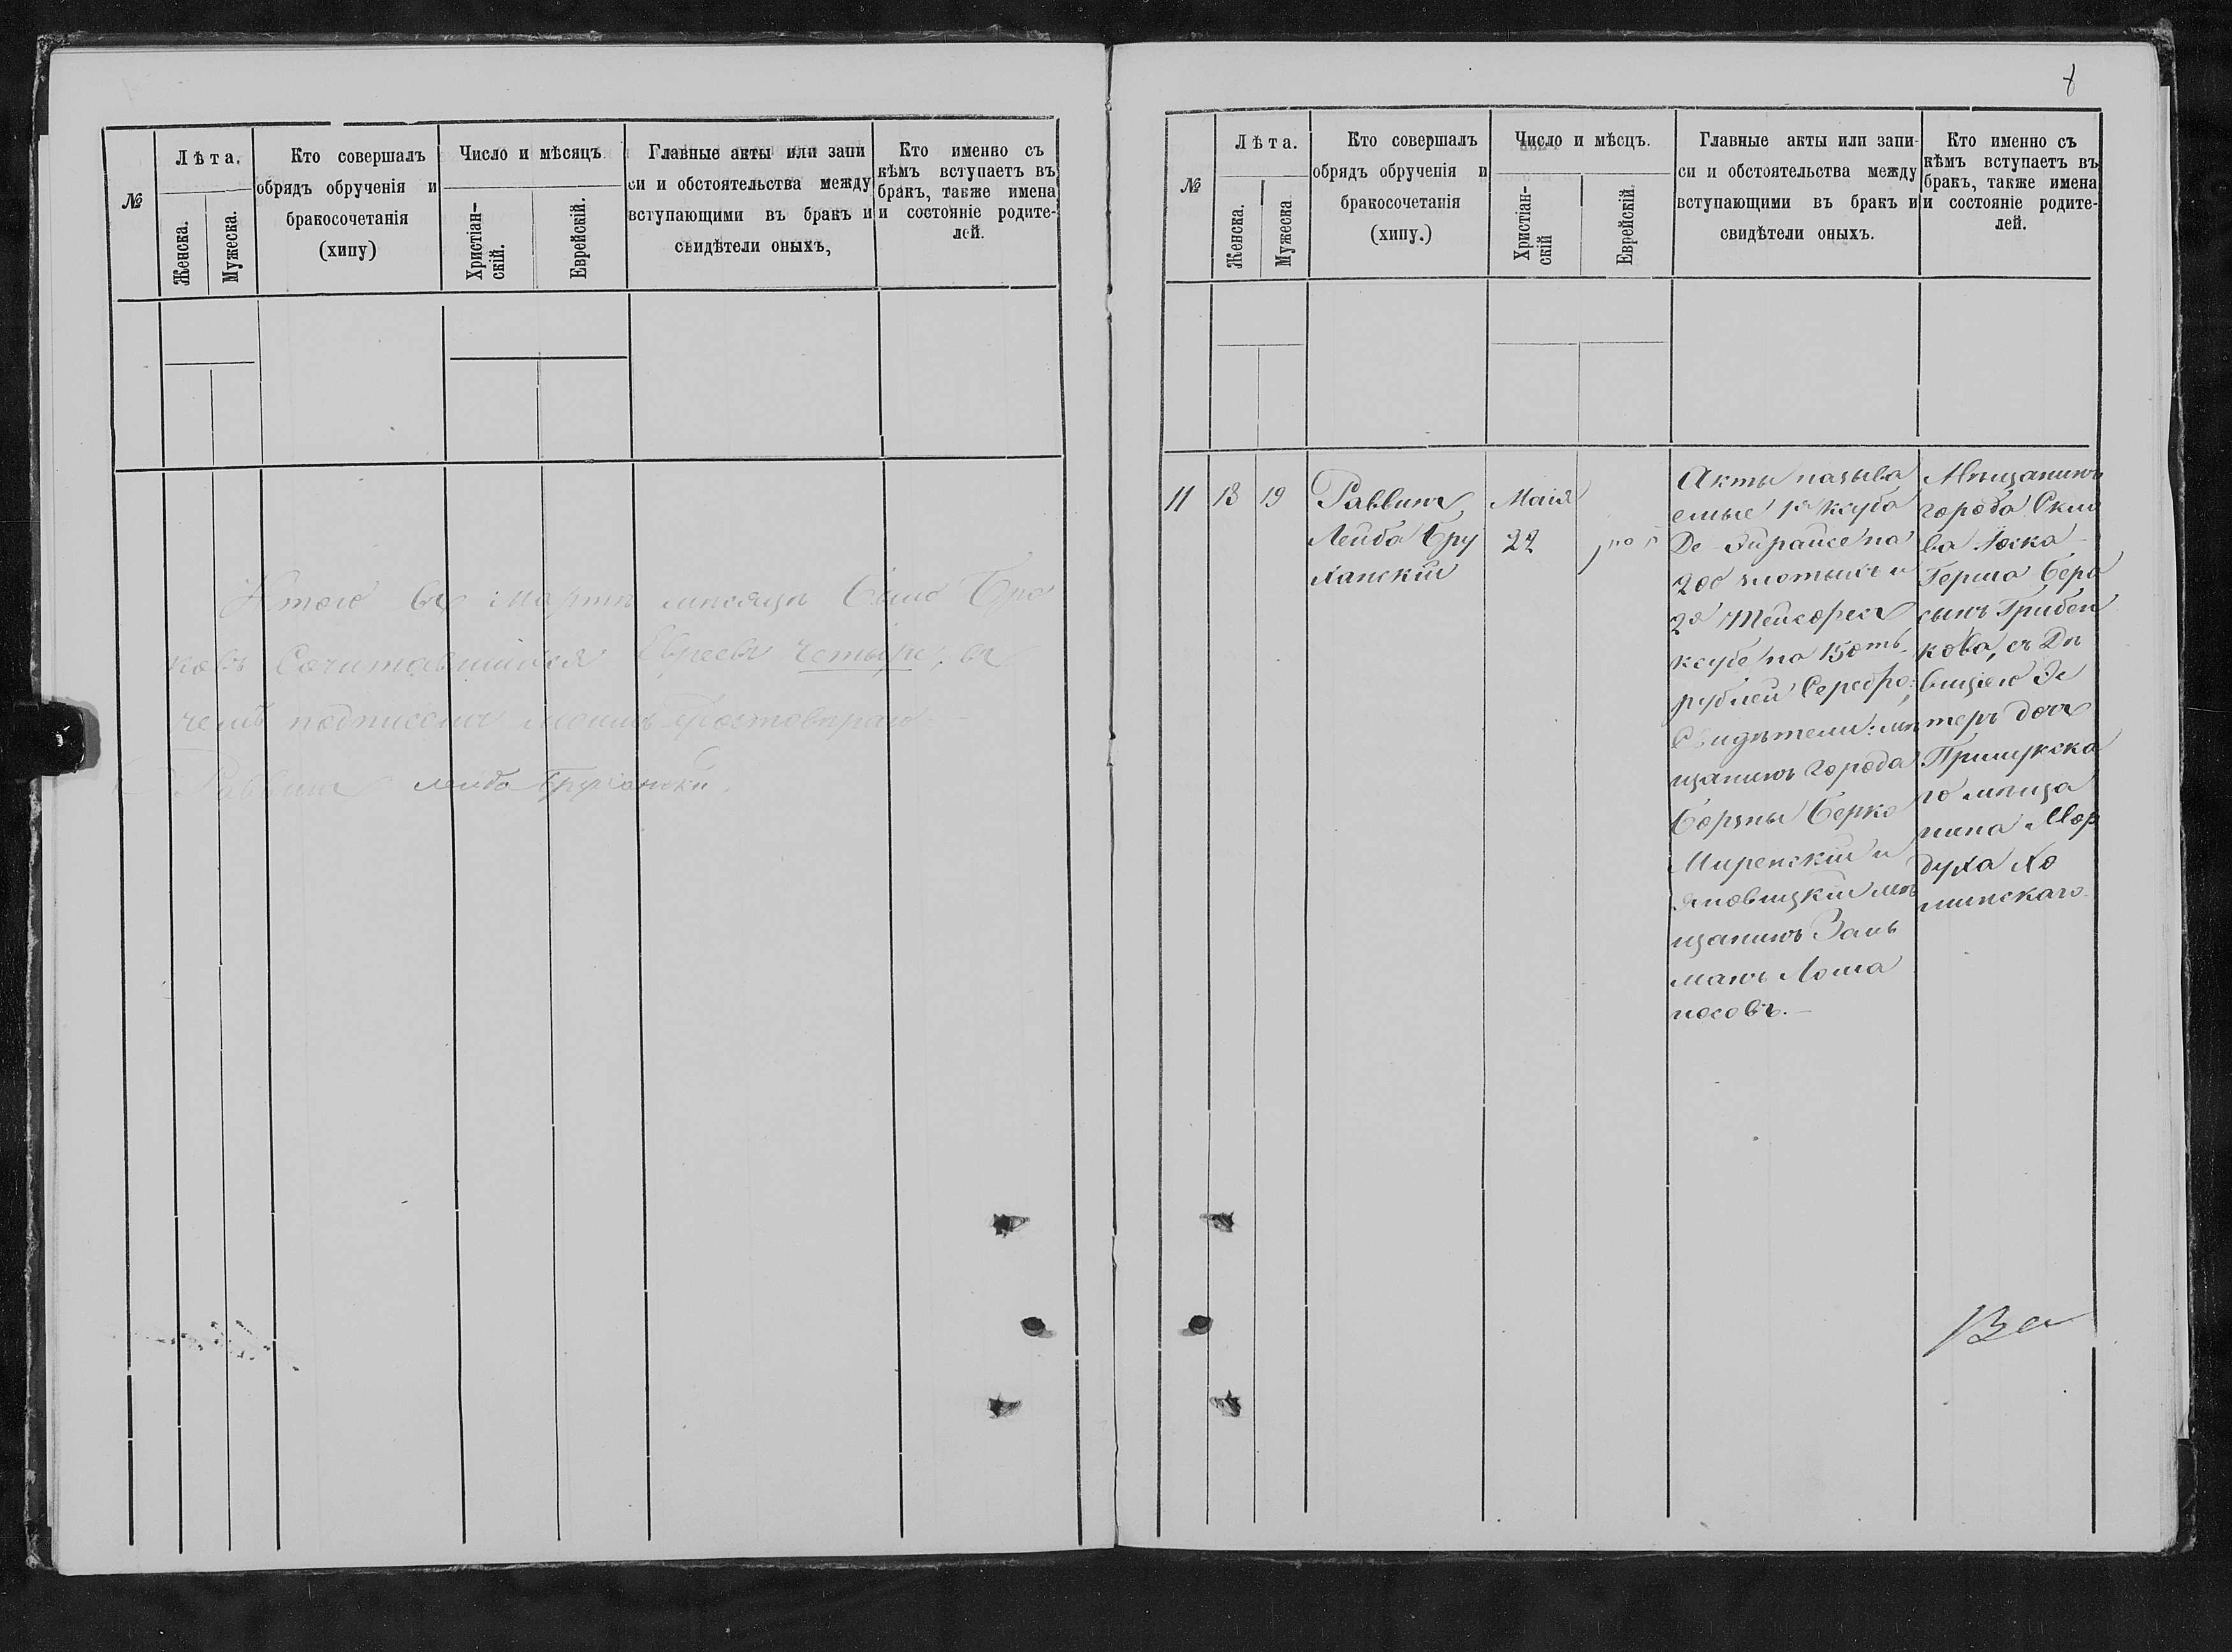 №
Лѣта.
Женска.
Мужеска.
Кто совершалъ
обрядъ обрученія и
бракосочетанія
(хипу)
Число и мѣсяцъ.
Христіан-
скій.
Еврейскій.
Главные акты или запи
си и обстоятельства между
вступающими въ бракъ и
свидѣтели оныхъ,
Кто именно съ
кѣмъ вступаетъ въ
бракъ, также имена
и состояніе родите-
лей.
Итого въ Мартѣ мѣсяцѣ было бра
ковъ Сочитавшихся Евреевъ четыре, въ
чемъ подписомъ моимъ
Раввинъ Лейба Бруханскій.
№
Лѣта.
Женска.
Мужеска
Кто совершалъ
обрядъ обрученія и
бракосочетанія
(хипу.)
Число и мѣсцъ.
Христіан-
скій
Еврейскій.
Главные акты или запи-
си и обстоятельства между
вступающими въ бракъ и
свидѣтели оныхъ.
Кто именно съ
кѣмъ вступаетъ въ
бракъ, также имена
и состояніе родите-
лей.
11 18 19
Раввинъ
Лейба Бру
ханскій
Маія
22
Акты называ
емые 1й Ксуба
Де-Эйрайсе на
200 злотыхъ и
2й Тейсофесъ
ксубе на 150ть
рублей Серебро;
Свидѣтели: мѣ
щанинъ города
Борзны Берко
Миренскій и
Яновицкій мѣ
щанинъ Заль
манъ Лоша
носовъ.
Мѣщанинъ
города Скви
ра Іоска
Герша Бера
сынъ Грибен
кова, съ Дѣ
вицею Эс
теръ дочь
Прилукска
го мѣща
нина Мор
духа Хо
минскаго